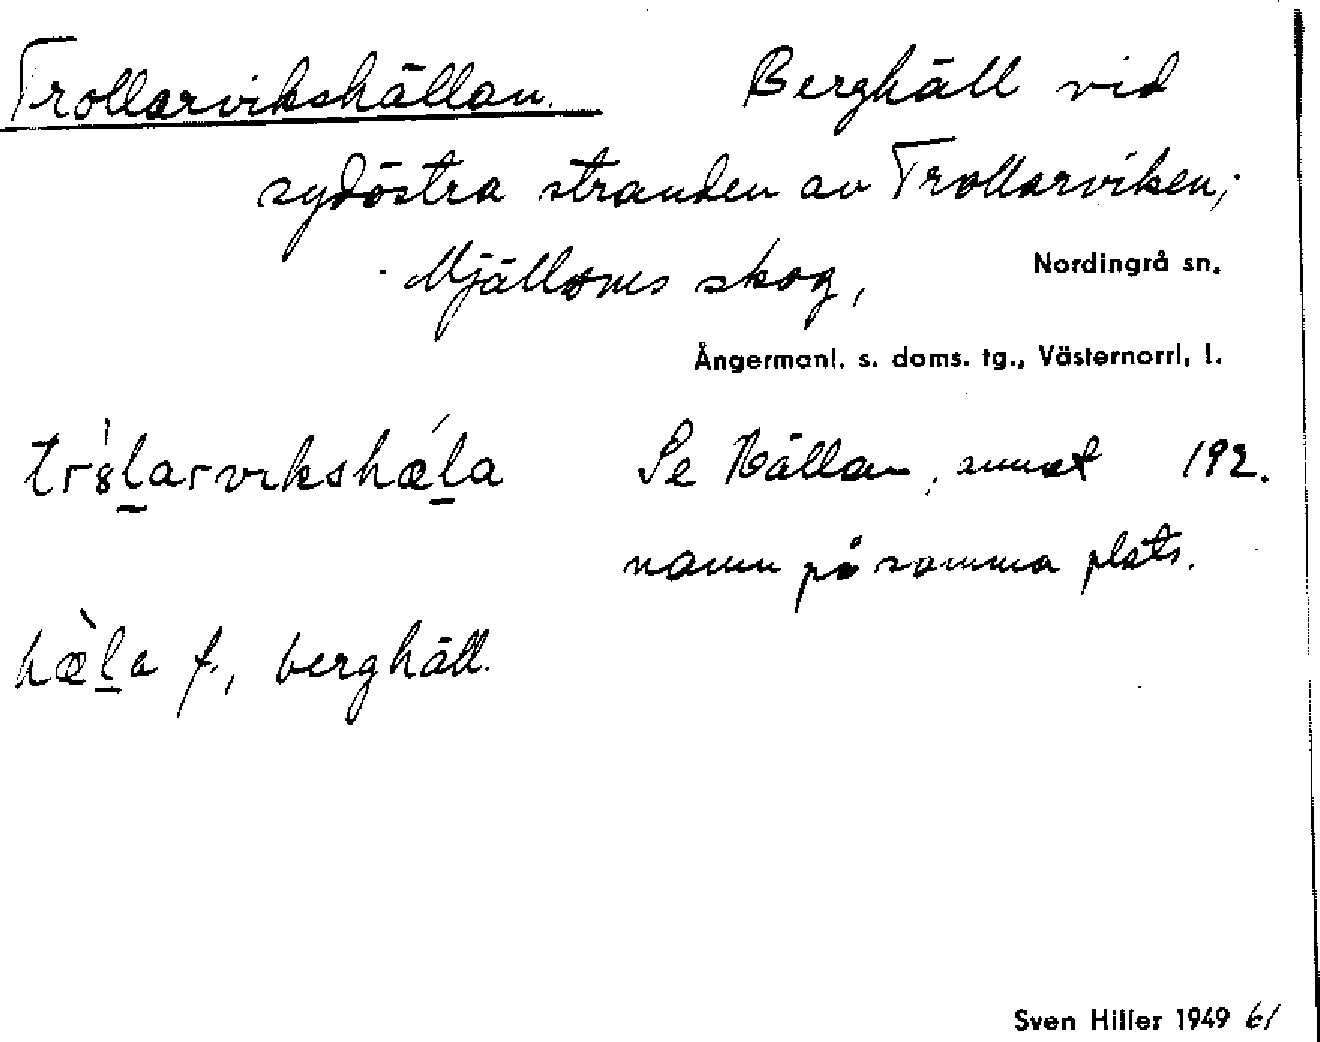 Trollarvikshällan. Berghäll vid
sydöstra stranden av Trollarviken,
Mjälloms skog, Nordingrå sn.
Ångermanl. s. doms. tg., Västernorrl. l.
Se Hällan, annat 192.
namn på samma plats.
hæ̀l̠a f., berghäll.
Sven Hiller 1949 61